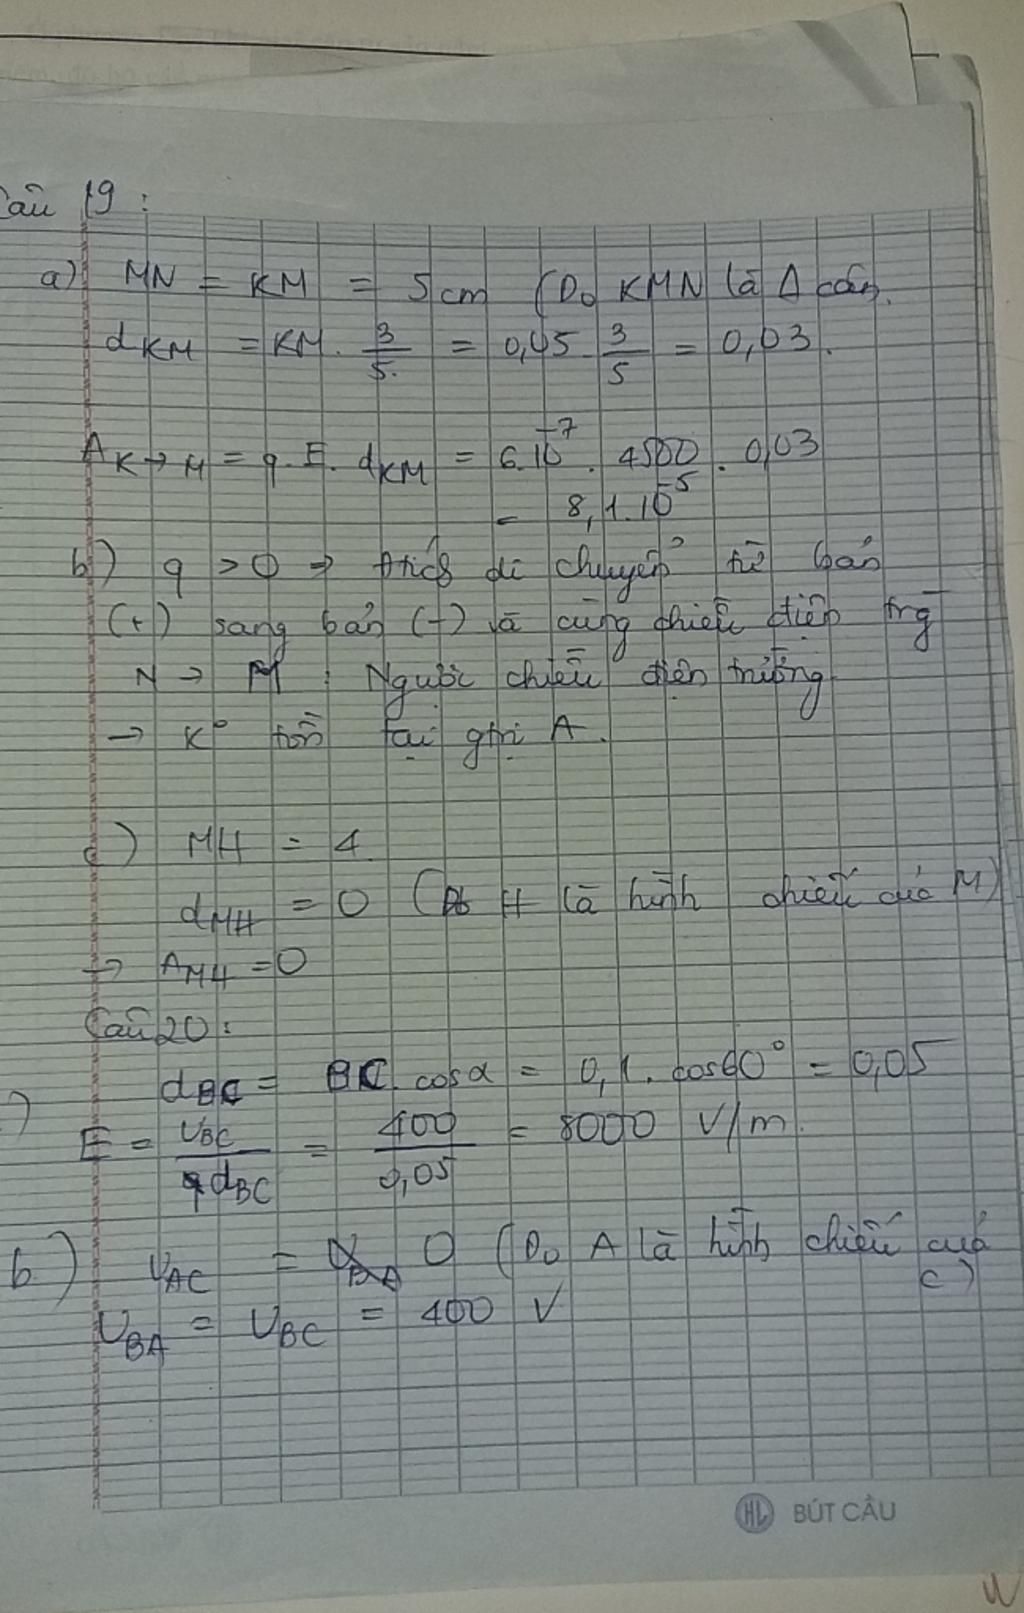 Câu 19 :
a) MN = KM = 5cm (Do KMN là Δ cân.
dKM = KM. 3/5 = 0,05. 3/5 = 0,03.
AK→M = q.E. dKM = 6.10^-7 . 4500 . 0,03
= 8,1.10^-5
b) q > 0 ⇒ đtích di chuyển từ bản
(+) sang bản (-) và cùng chiều điện trg
N → M : Ngược chiều điện trường
→ K° tồn tại gtrị A.
c) MH = 4
dMH = 0 (Do H là hình chiếu của M)
→ AMH = 0
Câu 20 :
dBC = BC. cosα = 0,1. cos60° = 0,05
E = UBC / dBC = 400 / 0,05 = 8000 V/m.
b) UAC = 0 (Do A là hình chiếu của
C)
UBA = UBC = 400 V
HL BÚT CÂU